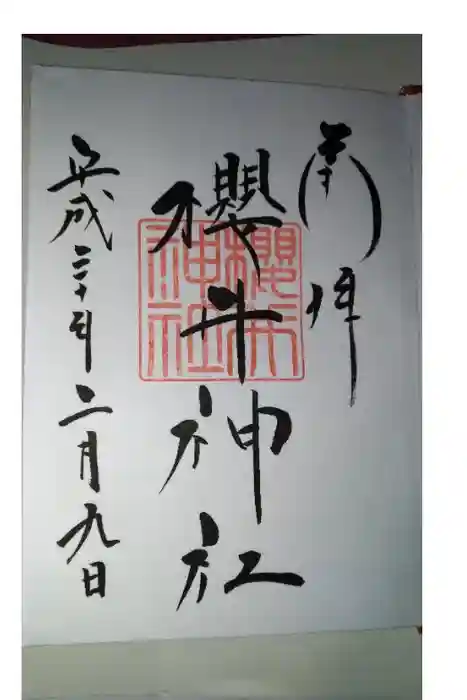 奉拝
櫻井神社
平成三十年二月九日
櫻井
神社